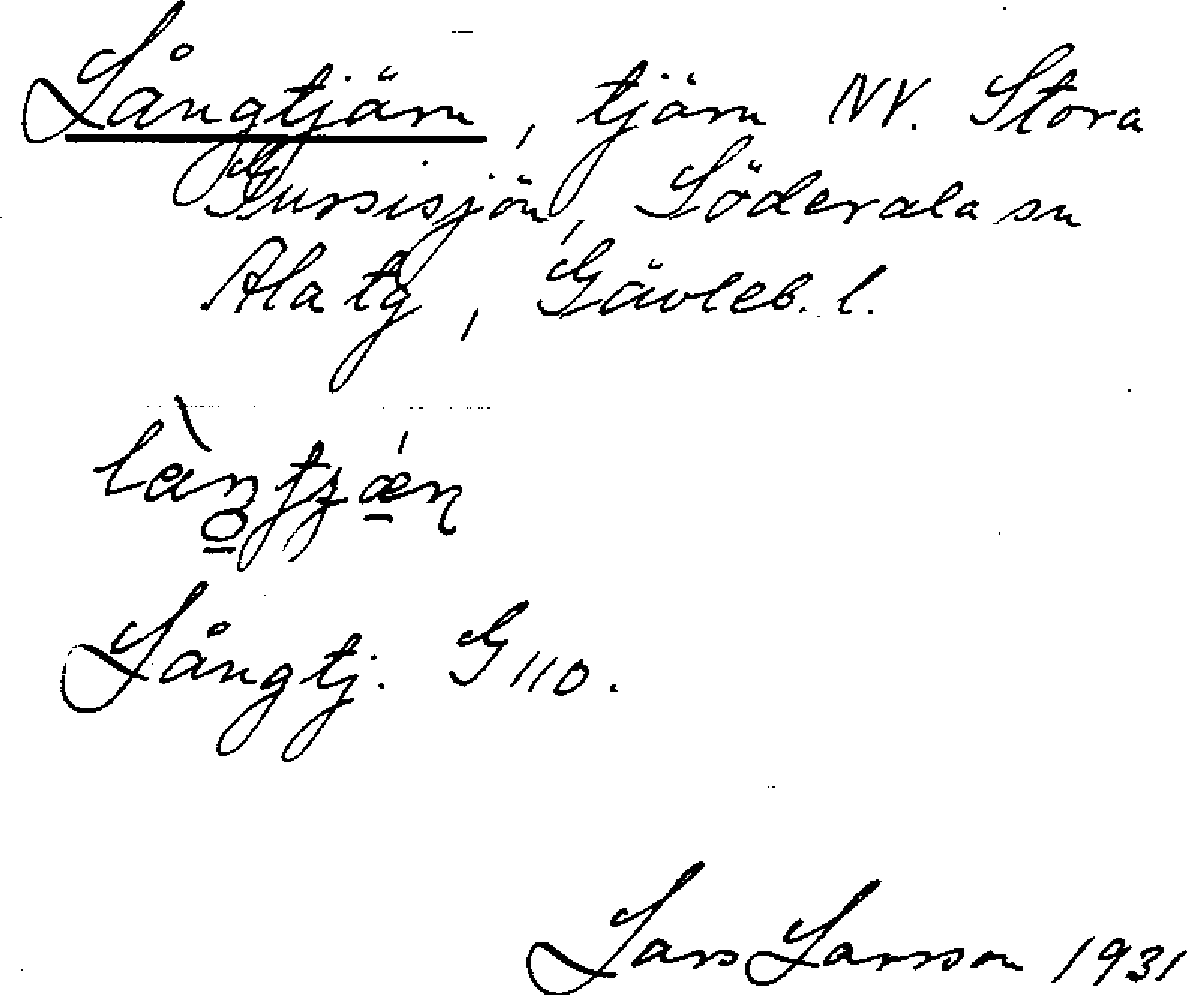 Långtjärn, tjärn NV. Stora
Gussisjön, Söderala sn
Ala tg, Gävleb. l.
Långtj. G 110.
Lars Larsson 1931